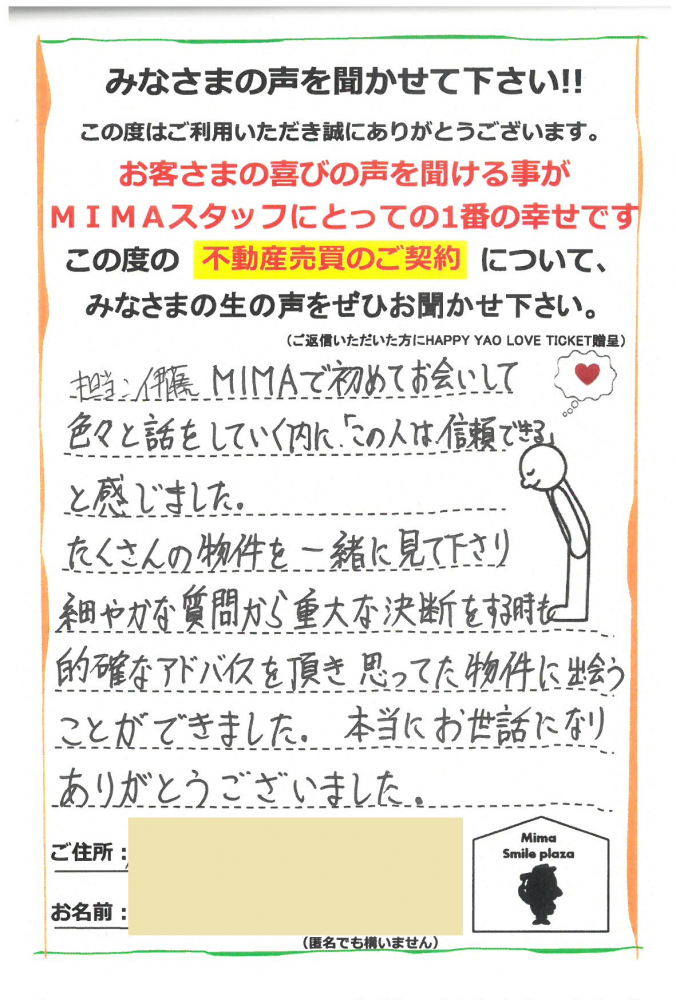 みなさまの声を聞かせて下さい!!
この度はご利用いただき誠にありがとうございます。
お客さまの喜びの声を聞ける事が
ＭＩＭＡスタッフにとっての1番の幸せです
この度の 不動産売買のご契約 について、
みなさまの生の声をぜひお聞かせ下さい。
（ご返信いただいた方にHAPPY YAO LOVE TICKET贈呈）
担当：伊藤 MIMAで初めてお会いして
色々と話をしていく内に、「この人は信頼できる」
と感じました。
たくさんの物件を一緒に見て下さり
細やかな質問から重大な決断をする時も
的確なアドバイスを頂き思ってた物件に出会う
ことができました。本当にお世話になり
ありがとうございました。
ご住所：
お名前：
（匿名でも構いません）
Mima
Smile plaza